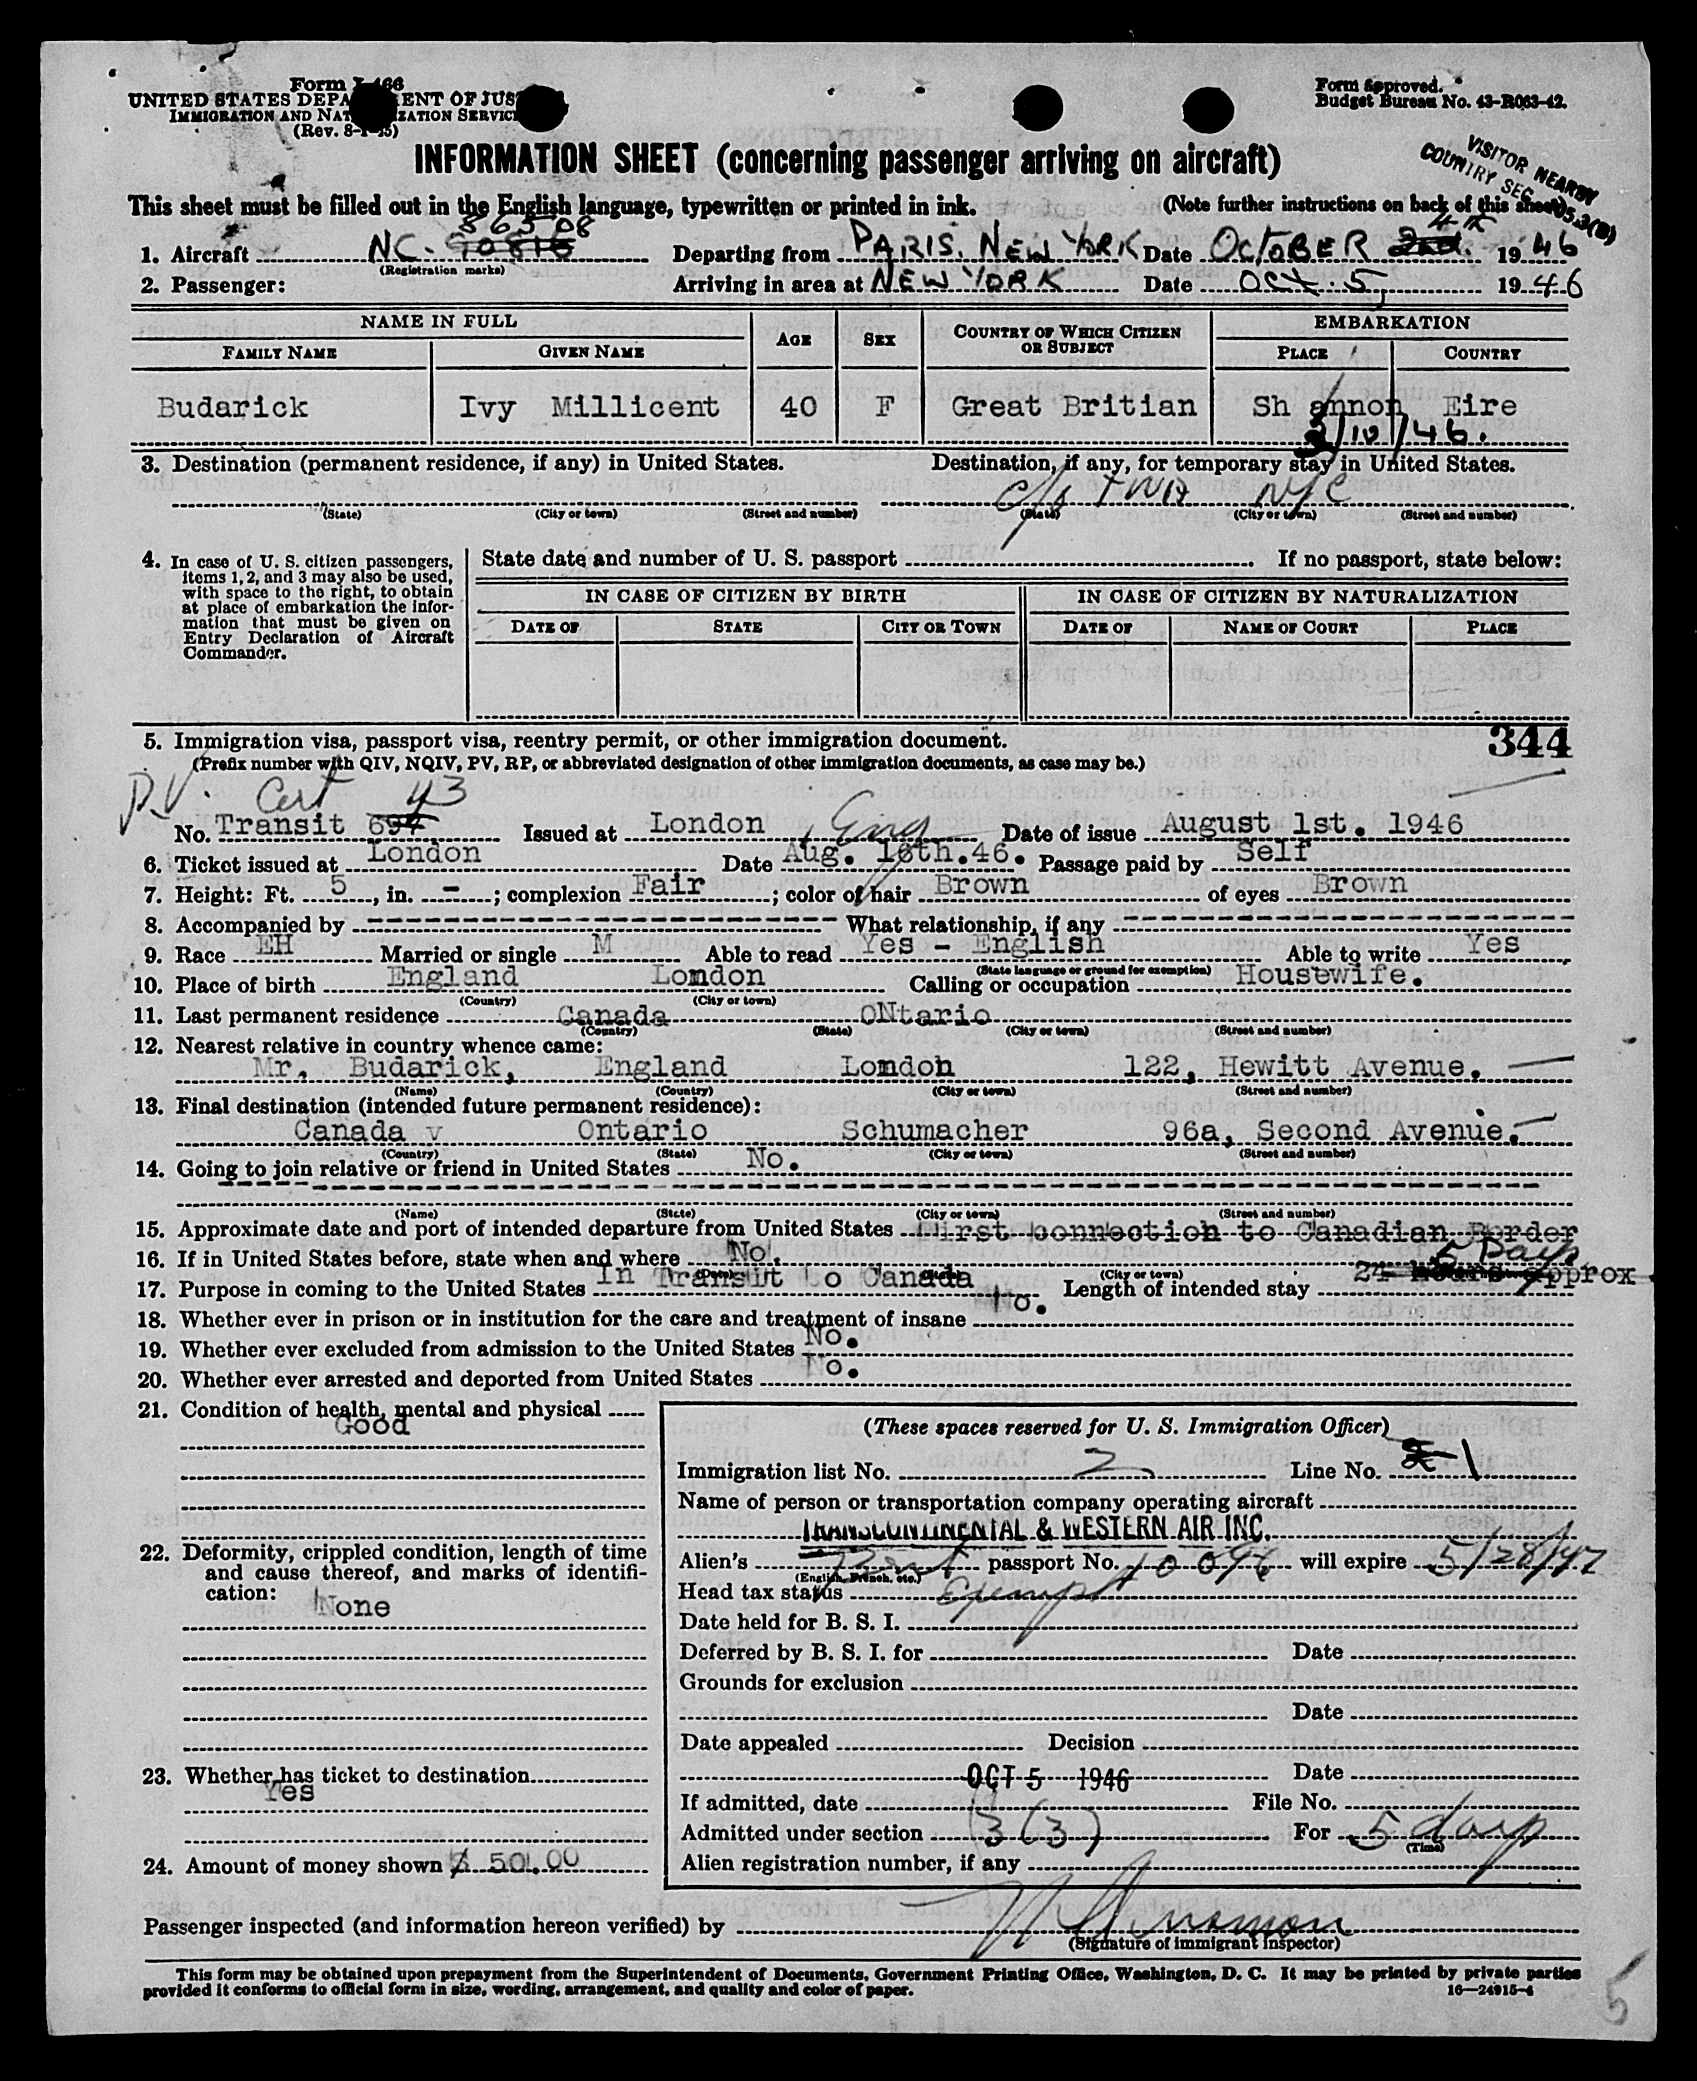 Form I-466
UNITED STATES DEPARTMENT OF JUSTICE
IMMIGRATION AND NATURALIZATION SERVICE
(Rev. 8-1-45)
Form approved.
Budget Bureau No. 43-R063-42.
VISITOR NEARBY
COUNTRY SEC. 105.3(B)
INFORMATION SHEET (concerning passenger arriving on aircraft)
This sheet must be filled out in the English language, typewritten or printed in ink. (Note further instructions on back of this sheet)
86508 4th
1. Aircraft NC-90816 Departing from PARIS, NEW YORK Date OCTOBER 2nd. 1946
(Registration marks)
2. Passenger: Arriving in area at NEW YORK Date OCT. 5, 1946
NAME IN FULL AGE SEX COUNTRY OF WHICH CITIZEN OR SUBJECT EMBARKATION
FAMILY NAME GIVEN NAME PLACE COUNTRY
Budarick Ivy Millicent 40 F Great Britian Sh annon Eire
3/10/46.
3. Destination (permanent residence, if any) in United States. Destination, if any, for temporary stay in United States.
c/o TWA NYC
(State) (City or town) (Street and number) (State) (City or town) (Street and number)
4. In case of U. S. citizen passengers, items 1, 2, and 3 may also be used, with space to the right, to obtain at place of embarkation the information that must be given on Entry Declaration of Aircraft Commander.
State date and number of U. S. passport If no passport, state below:
IN CASE OF CITIZEN BY BIRTH IN CASE OF CITIZEN BY NATURALIZATION
DATE OF STATE CITY OR TOWN DATE OF NAME OF COURT PLACE
344
5. Immigration visa, passport visa, reentry permit, or other immigration document.
(Prefix number with QIV, NQIV, PV, RP, or abbreviated designation of other immigration documents, as case may be.)
P.V. Cert 43
No. Transit 694 Issued at London Eng Date of issue August 1st. 1946
6. Ticket issued at London Date Aug. 16th.46. Passage paid by Self
7. Height: Ft. 5, in. -; complexion Fair; color of hair Brown of eyes Brown
8. Accompanied by What relationship, if any
9. Race EH Married or single M Able to read Yes - English Able to write Yes
(State language or ground for exemption)
10. Place of birth England London Calling or occupation Housewife.
(Country) (City or town)
11. Last permanent residence Canada ONtario
(Country) (State) (City or town) (Street and number)
12. Nearest relative in country whence came:
Mr. Budarick, England London 122, Hewitt Avenue.
(Name) (Country) (City or town) (Street and number)
13. Final destination (intended future permanent residence):
Canada v Ontario Schumacher 96a, Second Avenue.
(Country) (State) (City or town) (Street and number)
14. Going to join relative or friend in United States No.
(Name) (State) (City or town) (Street and number)
15. Approximate date and port of intended departure from United States First connection to Canadian Border
16. If in United States before, state when and where No.
(Date) (State) (City or town)
5 Days
17. Purpose in coming to the United States In Transit to Canada Length of intended stay 24 hours approx.
18. Whether ever in prison or in institution for the care and treatment of insane No.
19. Whether ever excluded from admission to the United States No.
20. Whether ever arrested and deported from United States No.
21. Condition of health, mental and physical
Good
22. Deformity, crippled condition, length of time and cause thereof, and marks of identification:
None
23. Whether has ticket to destination
Yes
24. Amount of money shown $ 50.00
(These spaces reserved for U. S. Immigration Officer)
Immigration list No. 2 Line No. 1
Name of person or transportation company operating aircraft
TRANSCONTINENTAL & WESTERN AIR INC.
Alien's Brit passport No. 10096 will expire 5/28/47
(English, French, etc.)
Head tax status Exempt
Date held for B. S. I.
Deferred by B. S. I. for Date
Grounds for exclusion
Date
Date appealed Decision
OCT 5 1946 Date
If admitted, date File No.
Admitted under section 3(3) For 5 days
(Time)
Alien registration number, if any
Passenger inspected (and information hereon verified) by
(Signature of immigrant inspector)
This form may be obtained upon prepayment from the Superintendent of Documents, Government Printing Office, Washington, D. C. It may be printed by private parties
provided it conforms to official form in size, wording, arrangement, and quality and color of paper.
16—24915-4
5